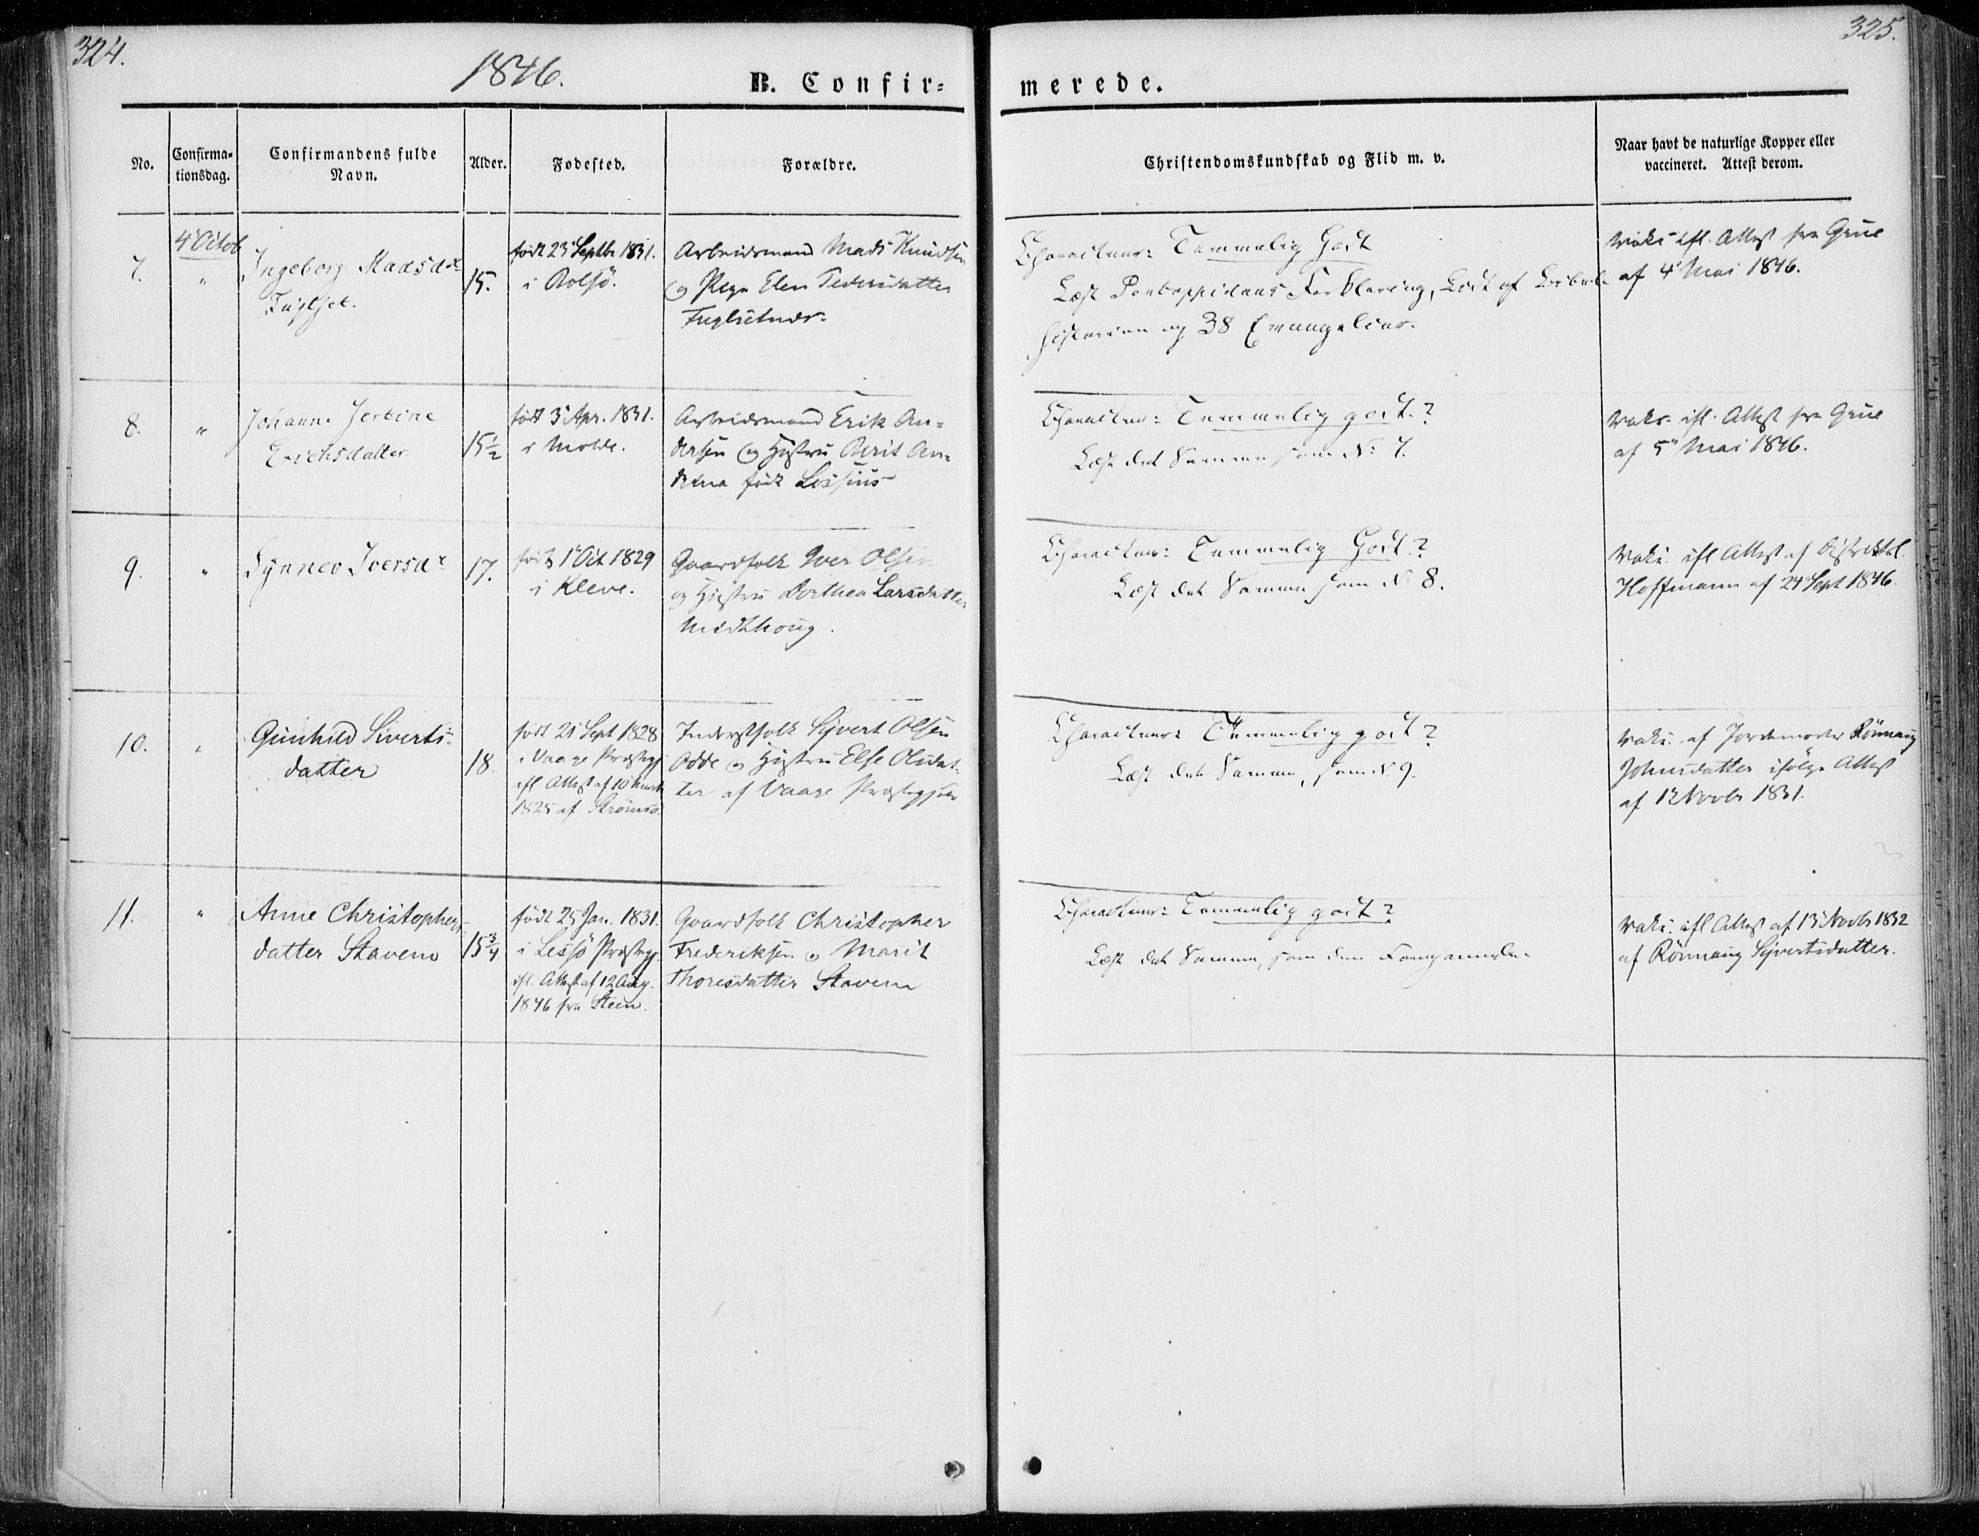 324.
1846.
B. Confir=
merede.
325.
No.
Confirma-
tionsdag.
Confirmandens fulde
Navn.
Alder.
Fodested.
Forældre.
Christendomskundskab og Flid m. v.
Naar havt de naturlige Kopper eller
vaccineret. Attest derom.
7.
4 Octob
"
Ingeborg Madsdr
15.
født 23 Septbr 1831.
i Bolsö.
Arbeidsmand Mads Knudsen
og Pige Elen Pedersdatter
Characteer: Temmelig Godt
Læst Pontoppidans Forklaring, Lidt af Bibel-
historien og 38 Evangelier.
Vaks. ifl. Attest fra Grue
af 4 Mai 1846.
8.
"
Johanne Jerbine
Erichsdatter
15½
født 3 Apr. 1831.
i Molde.
Arbeidsmand Erik An=
dersen og Hustru Berit An=
drina født Lossius
Characteer: Temmelig godt.?
Læst det Samme som No 7.
Vaks. ifl. Attest fra Grue
af 5 Mai 1846.
9.
"
Synnev Iversdr
17.
født 1 Oct 1829
i Kleve.
Gaardfolk Iver Olsen
og Hustru Dorthea Larsdatter
Midthoug.
Characteer: Temmelig Godt.?
Læst det Samme som No 8.
Vaks. ifl Attest af
Hoffmann af 24 Sept 1846.
10.
"
Gunhild Siverts-
datter
18.
født 21 Sept 1828
i Vaage Præstegj
ifl Attest af 10
1825 af Strömsö.
Inderstfolk Sjvert Olsen
Odde og Hustru Else Olsdat-
ter af Vaage Præstegjeld
Characteer: Temmelig godt?
Læst det Samme, som No 9.
Vaks. af Jordemoder Rönnaug
Johnsdatter ifølge Attest
af 12 Novbr 1831.
11.
"
Anne Christophers-
datter Stavem
15¾
født 25 Jan. 1831.
i Lessö Præstegj.
ifl. Attest af 12 Aug.
1846 fra Steen.
Gaardfolk Christopher
Frederiksen og Marit
Thoresdatter Stavem
Characteer: Temmelig godt?
Læst det Samme, som den Foregaaende.
Vaks. ifl Attest af 13 Novbr 1832
af Rönnaug Sjvertsdatter.